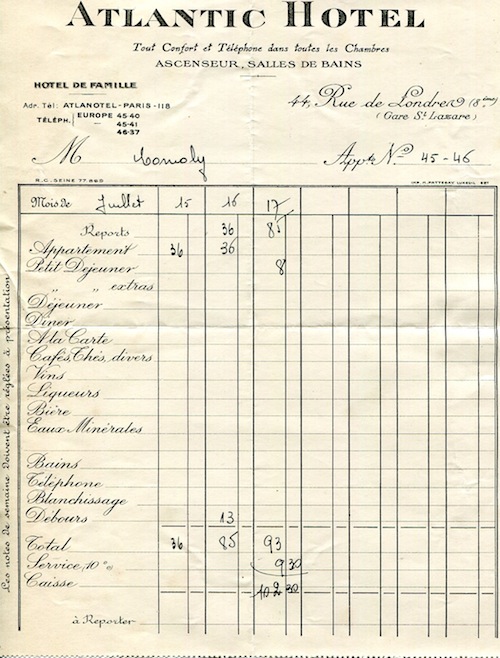 ATLANTIC HOTEL
Tout Confort et Téléphone dans toutes les Chambres
ASCENSEUR, SALLES DE BAINS
HOTEL DE FAMILLE
44, Rue de Londres (8ème)
(Gare St Lazare)
Adr. Tél: ATLANOTEL-PARIS-118
TÉLÉPH. EUROPE 45-40
45-41
46-37
M
Appt. No 45-46
R.C. SEINE 77.865
Mois de Juillet 15 16 17
Reports 36 85
Appartement 36 36
Petit Déjeuner 8
„ „ extras
Déjeuner
Dîner
A la Carte
Cafés, Thés, divers
Vins
Liqueurs
Bière
Eaux Minérales
Bains
Téléphone
Blanchissage
Débours 13
Total 36 85 93
Service, 10% 9 30
Caisse 102 30
à Reporter
Les notes de semaine doivent être réglées à présentation